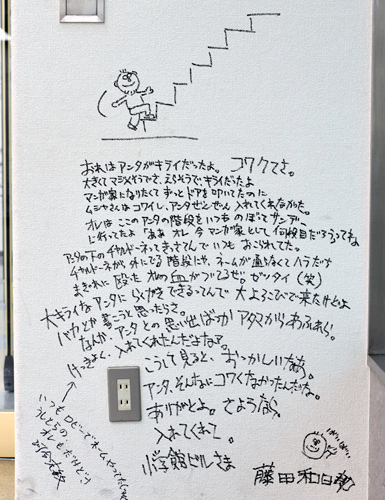 おれはアンタがキライだったよ。コワクてさ。
大きくてマジメそうでさ、えらそうで、キライだったよ
マンガ家になりたくて ずっとドアを叩いてたのに
ムシャさんはコワイし、アンタぜんぜん 入れてくれなかった。
オレは ここの アンタの階段を いつも のぼってサンデー
に行ったよ 「ああ オレ 今 マンガ家として 何段目だろう」ってね
アンタの下の チャルドーネって きっさてんで いつも おこられてた。
チャルドーネから 外にでる 階段にゃ、ネームが通らなくて ハラだち
まぎれに 殴った オレの血がついてるぜ。ゼッタイ(笑)
大キライなアンタに らくがきできるってんで 大よろこびで来たけどよ
バカとか書こうと思ったらさ。
なんか、アンタとの思い出ばっか アタマからあふれら。
けっきょく、入れてくれたんだよなァ。
こうして見ると、おっかしいなあ。
アンタ、そんなに コワくなかったんだな。
ありがとよ。さようなら。
入れてくれて。
小学館ビルさま
藤田和日郎
ばいばい
いつもロビーでネームやってたくせに